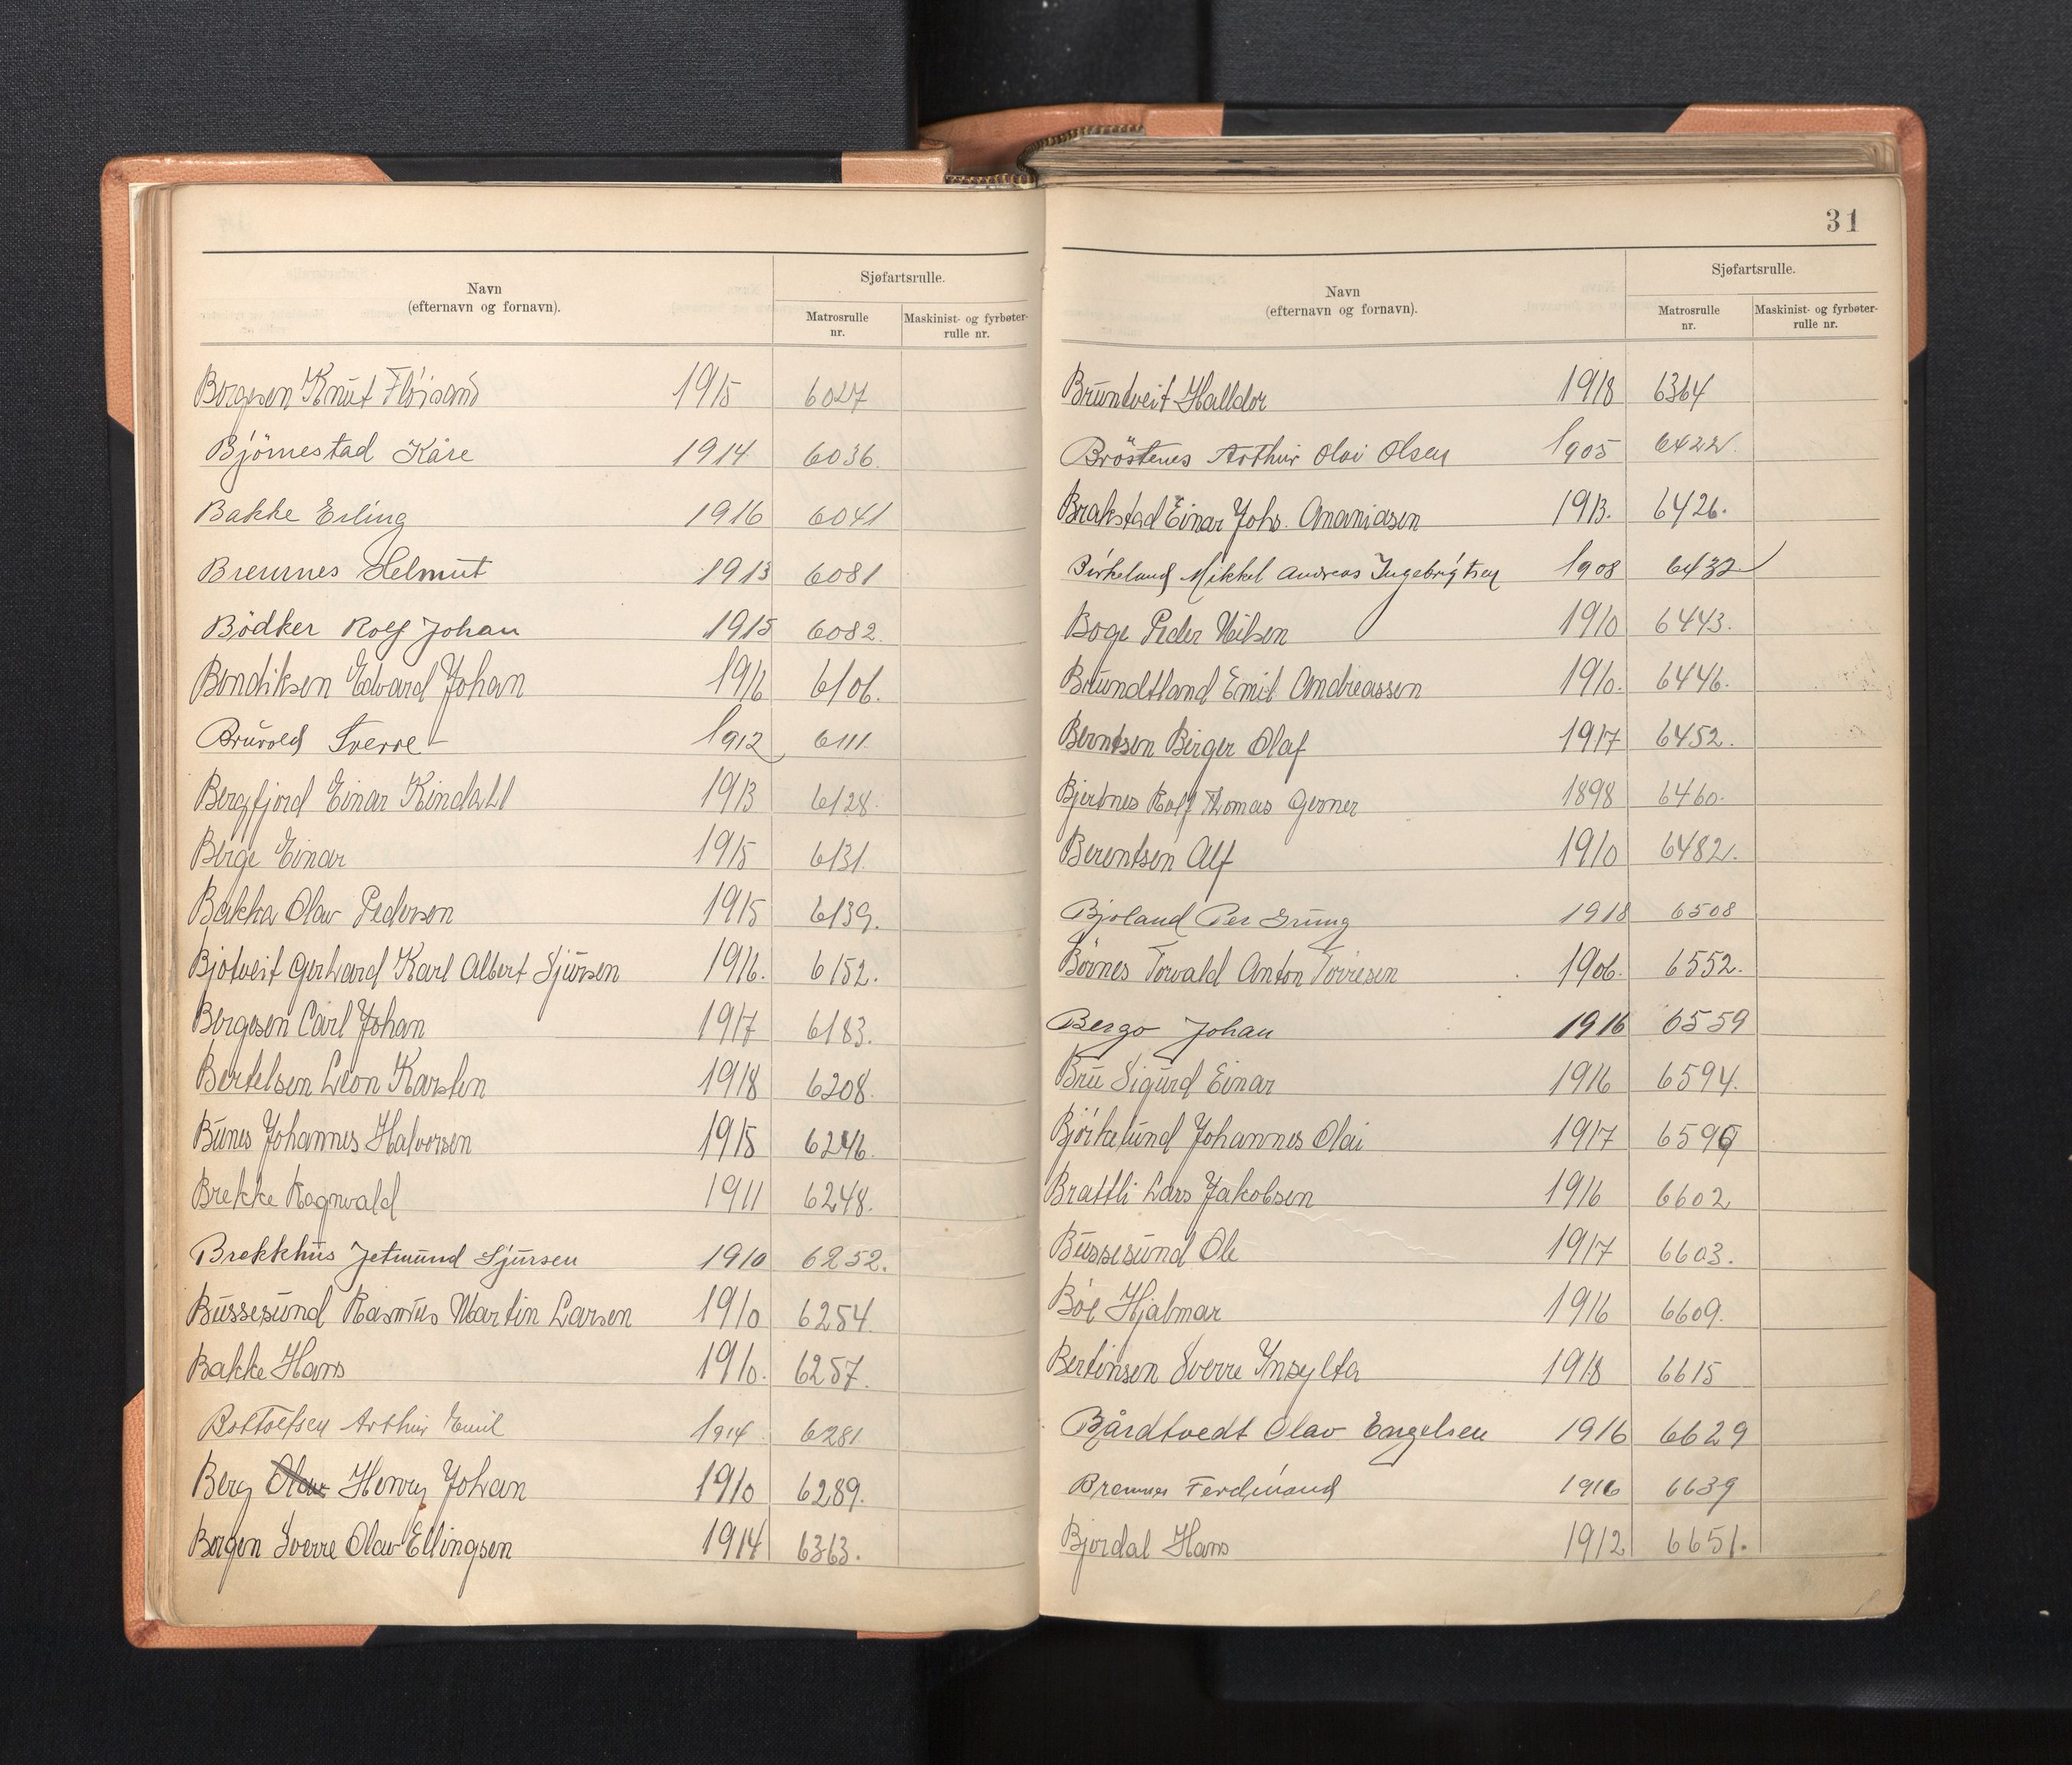 Navn
(efternavn og fornavn).
Sjøfartsrulle.
Matrosrulle
nr.
Maskinist- og fyrbøter-
rulle nr.
Borgesen Knut Flöisand 1915 6027
Björnestad Kåre 1914 6036.
Bakke Erling 1916 6041
Bremnes Helmut 1913 6081
Bödker Rolf Johan 1915 6082.
Bendiksen Edvard Johan 1916 6106.
Bruvold Sverre 1912 6111.
Bergfjord Einar Kindahl 1913 6128.
Berge Einar 1915 6131.
Bakka Olav Pedersen 1915 6139.
Bjotveit Gerhard Karl Albert Sjursen 1916. 6152.
Bergesen Carl Johan 1917 6183.
Bertelsen Leon Karsten 1918 6208.
Bunes Johannes Halvorsen 1915 6246.
Brekke Ragnvald 1911 6248.
Brekkhus Jetmund Sjursen 1910 6252.
Bussesund Rasmus Martin Larsen 1910 6254.
Bakke Hans 1910. 6257.
Bottolfsen Arthur Emil 1914 6281
Berg Olav Henry Johan 1910 6289.
Borgen Sverre Olav Ellingsen 1914 6363.
31
Navn
(efternavn og fornavn).
Sjøfartsrulle.
Matrosrulle
nr.
Maskinist- og fyrbøter-
rulle nr.
Bruntveit Halldor 1918 6364
Bröstenes Arthur Olai Olsen 1905 6422.
Brakstad Einar Johs. Ananiasen 1913. 6426.
Birkeland Mikkel Andreas Ingebrigtsen 1908 6432
Boge Peder Nilsen 1910 6443.
Brundtland Emil Andreassen 1910. 6446.
Berntsen Birger Olaf 1917 6452.
Bjertnes Rolf Thomas Gerner 1898 6460.
Berentsen Alf 1910 6482.
Bjoland Per Grung 1918 6508
Börnes Torvald Anton Torresen 1906. 6552.
Bergo Johan 1916 6559
Bru Sigurd Einar 1916 6594.
Björkelund Johannes Olai 1917 6599
Brattli Lars Jakobsen 1916 6602
Bussesund Ole 1917 6603.
Böe Hjalmar 1916 6609.
Bertinsen Sverre Ynsylta 1918 6615
Bårdtvedt Olav Engelsen 1916 6629
Bremnes Ferdinand 1916 6639
Bjordal Hans 1912 6651.